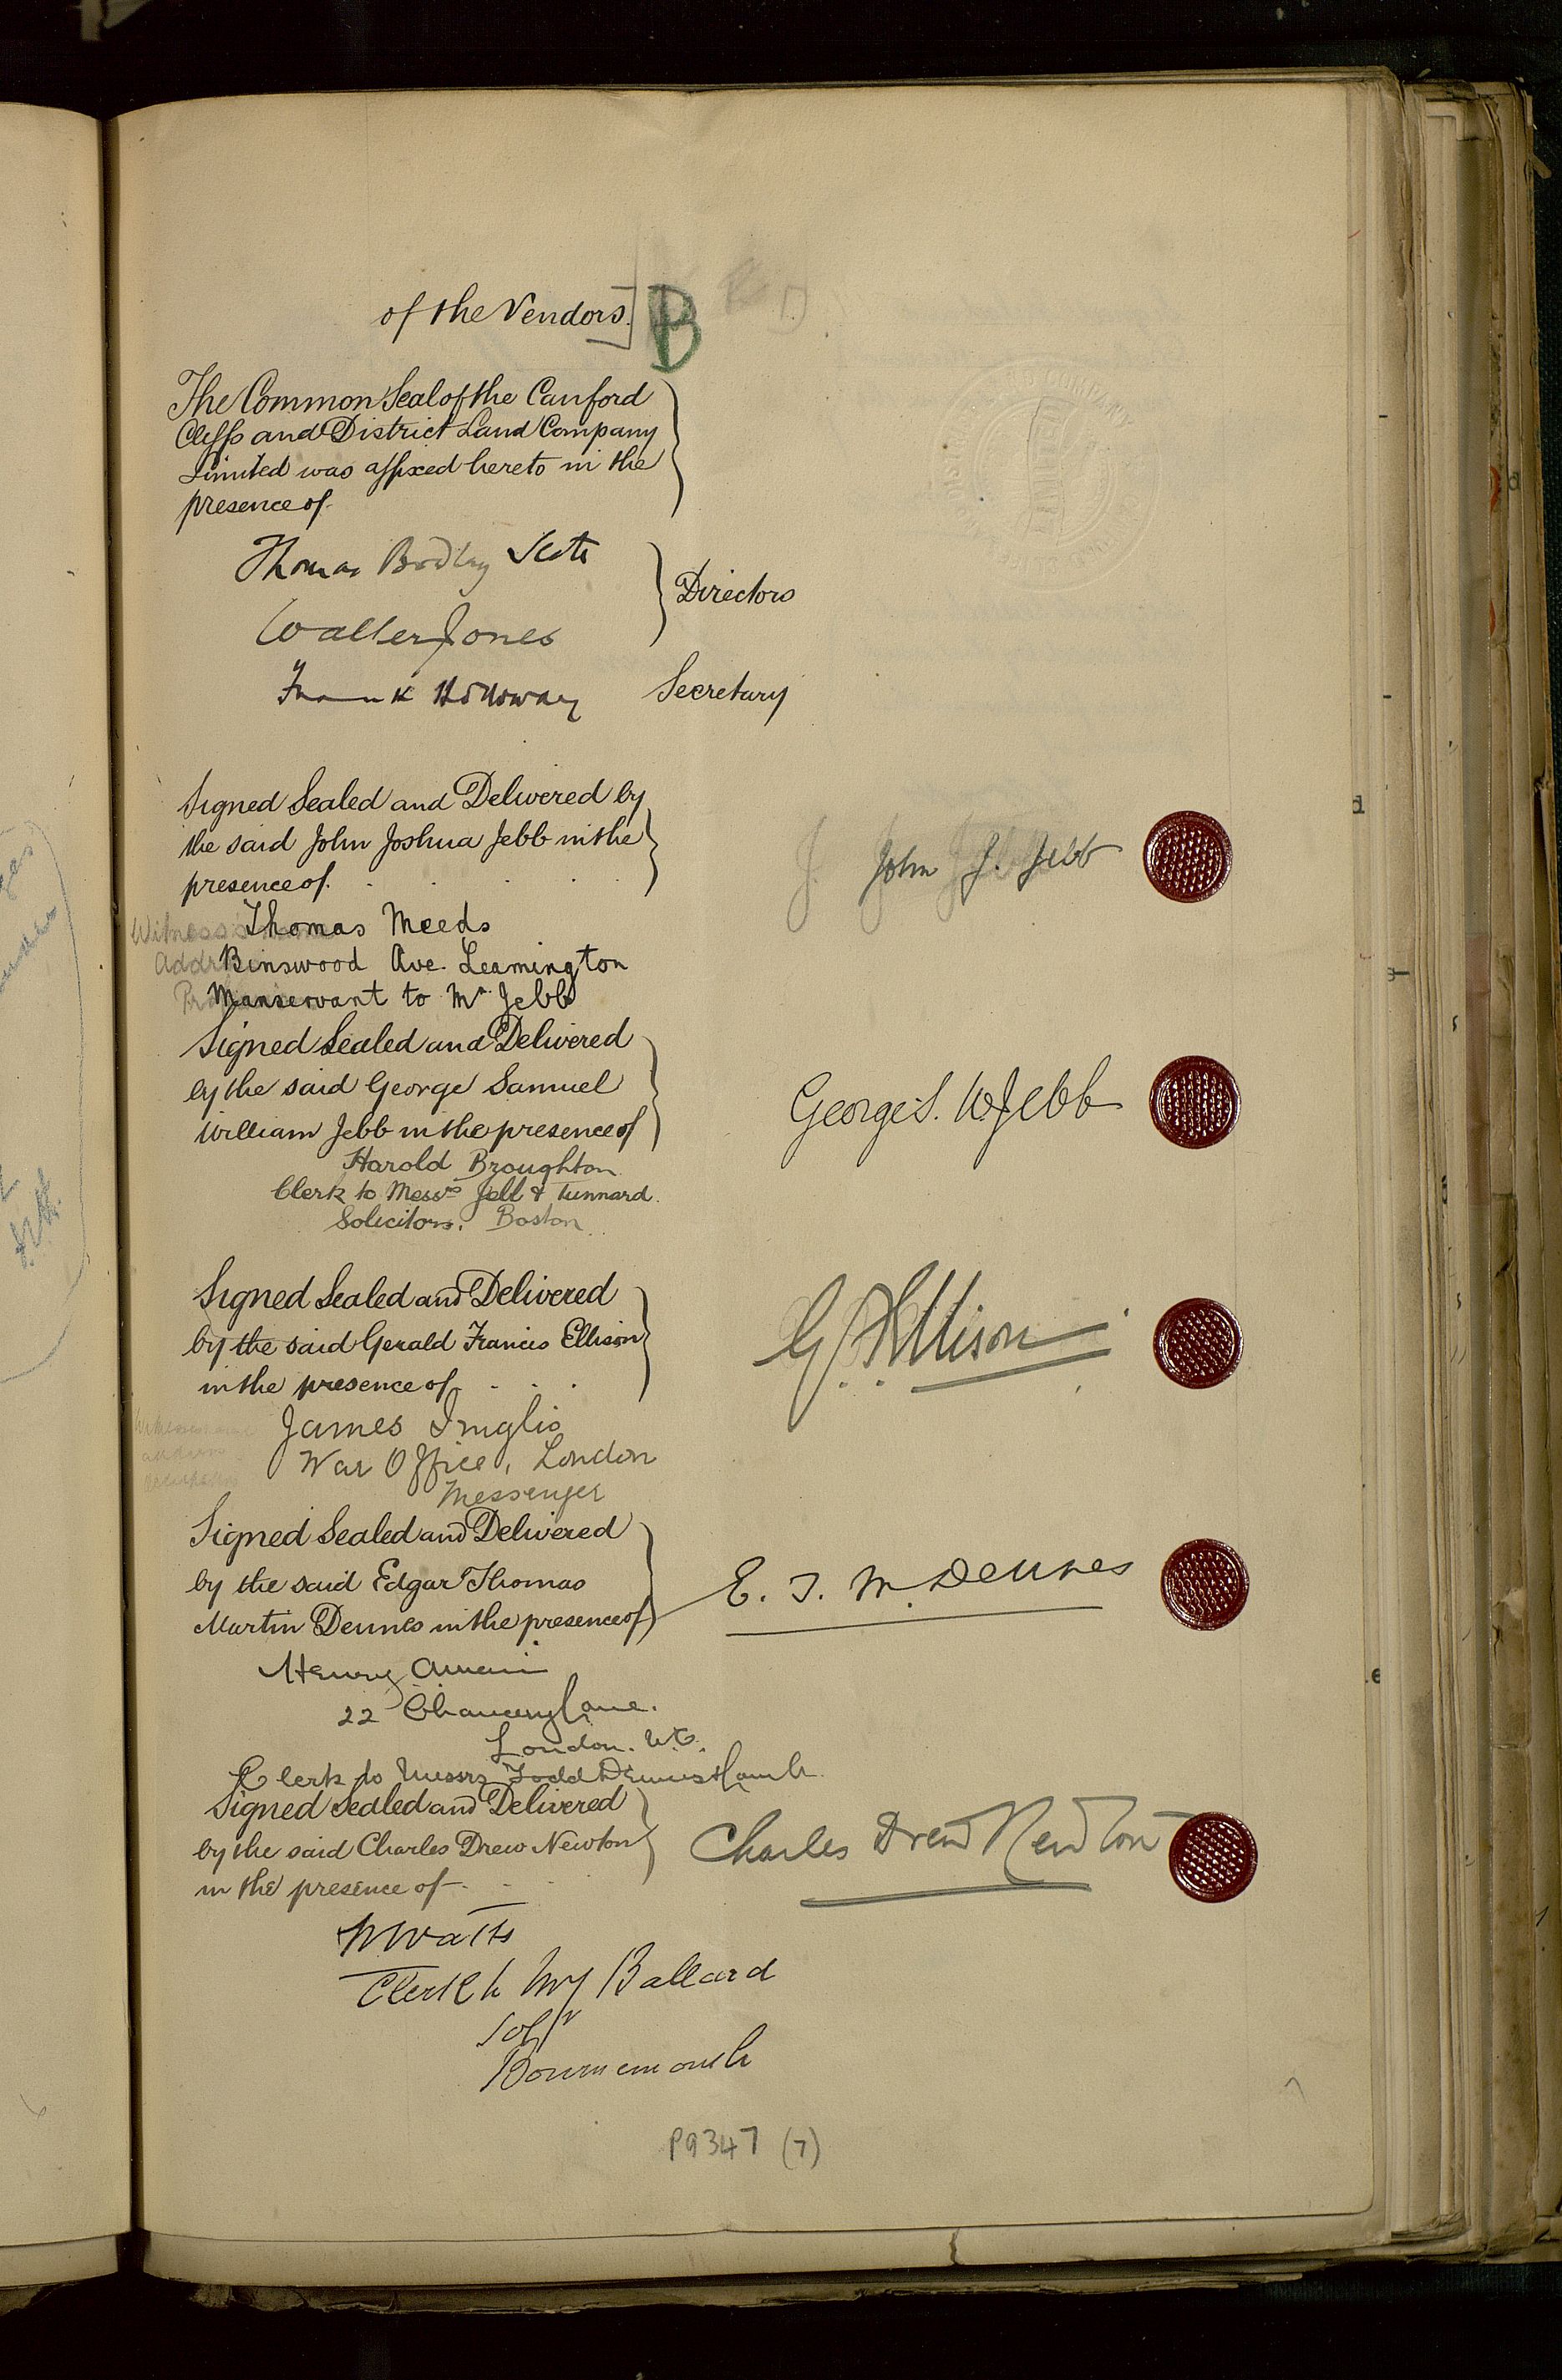 of the Vendors.] B
The Common Seal of the Canford
Cliffs and District Land Company
Limited was affixed hereto in the
presence of
Thomas Bodley Scott
Walter Jones
Directors
Frank Holloway Secretary
Signed Sealed and Delivered by
the said John Joshua Jebb in the
presence of
John J. Jebb
Witness's
Thomas Meeds
Binswood Ave. Leamington
Manservant to Mr Jebb
Signed Sealed and Delivered
by the said George Samuel
William Jebb in the presence of
George S. W. Jebb
Harold Broughton
Clerk to Messrs Jebb & Tunnard
Solicitors, Boston
Signed Sealed and Delivered
by the said Gerald Francis Ellison
in the presence of
G. F. Ellison
James Inglis
War Office, London
Messenger
Signed Sealed and Delivered
by the said Edgar Thomas
Martin Dennes in the presence of
E. T. M. Dennes
Henry
22 Chancery Lane.
London. W.C.
Clerk to Messrs Todd Dennes & Lamb
Signed Sealed and Delivered
by the said Charles Drew Newton
in the presence of
Charles Drew Newton
Watts
Clerk to Ballard
Solr
Bournemouth
P9347 (7)